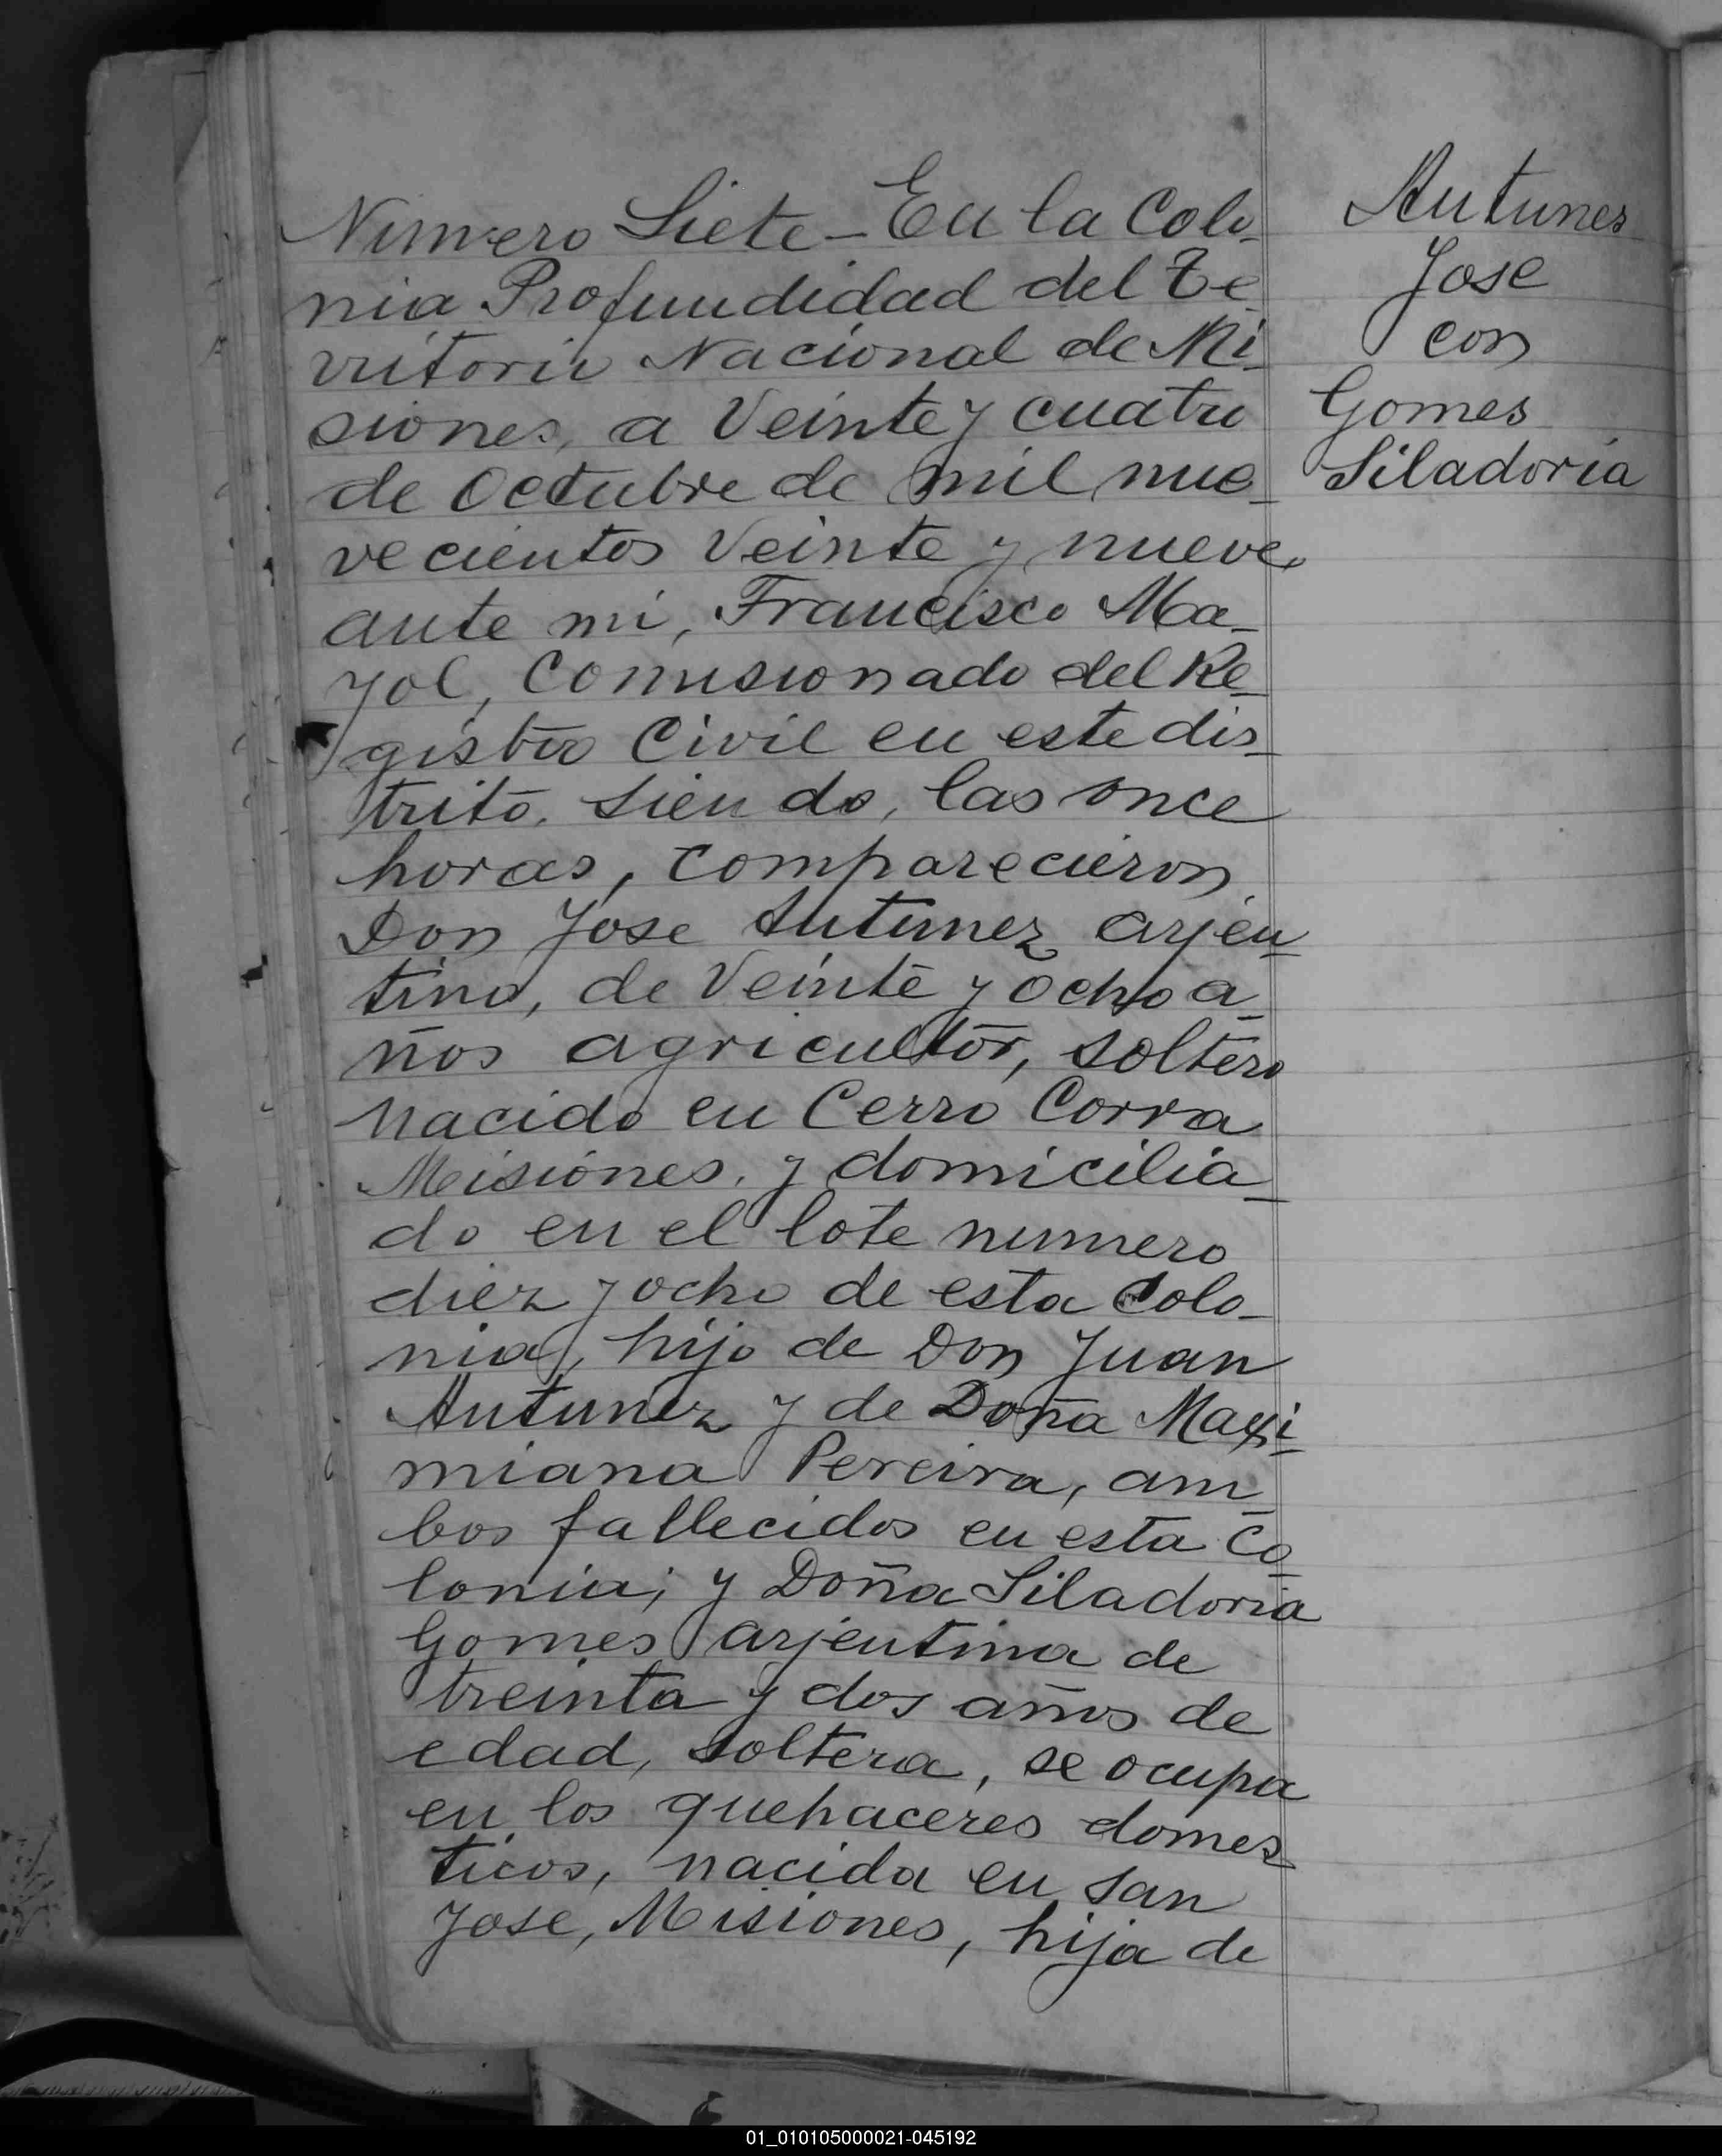 Numero Siete - En la Colo-
nia Profundidad del Te-
rritorio Nacional de Mi-
siones, a Veinte y cuatro
de Octubre de mil nue-
vecientos Veinte y nueve,
ante mi, Francisco Ma-
yol, Comisionado del Re-
gistro Civil en este dis-
trito. siendo, las once
horas, comparecieron
Don Jose Antunez arjen-
tino, de Veinte y ocho a-
ños agricultor, soltero
nacido en Cerro Corra
Misiones, y domicilia-
do en el lote numero
diez y ocho de esta Colo-
nia, hijo de Don Juan
Antunez y de Doña Maxi-
miana Pereira, am-
bos fallecidos en esta Co-
lonia; y Doña Siladoria
Gomes arjentina de
treinta y dos años de
edad, soltera, se ocupa
en los quehaceres domes-
ticos, nacida en san
Jose, Misiones, hija de
Antunes
Jose
con
Gomes
Siladoria
01_010105000021-045192